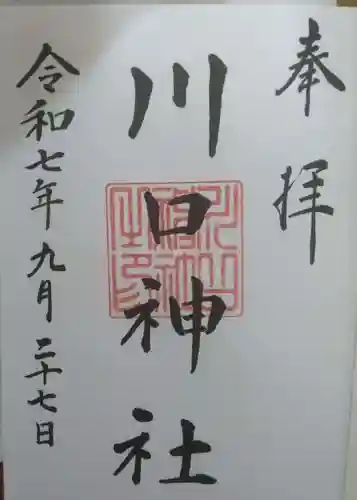 奉拝
川口神社
令和七年九月二十七日